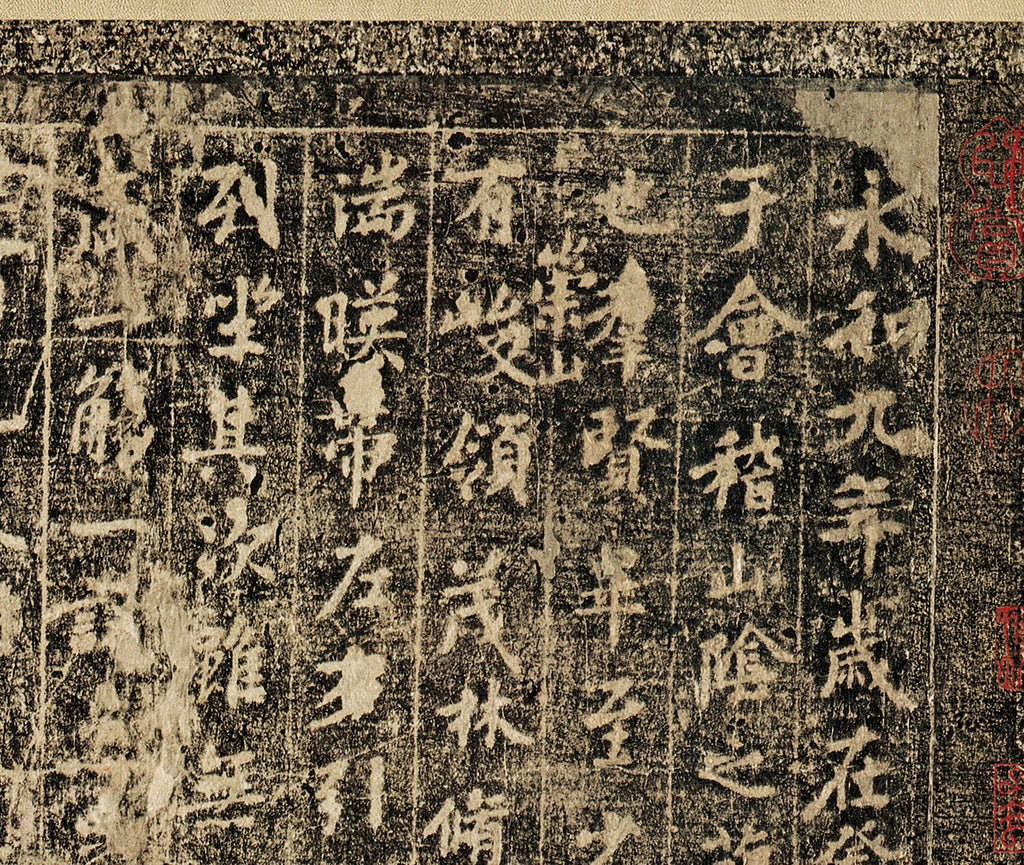 永和九年歲在癸
于會稽山陰之
也羣賢畢至少
有崇山峻領茂林脩
湍暎帶左右引
列坐其次雖無
一觴一詠